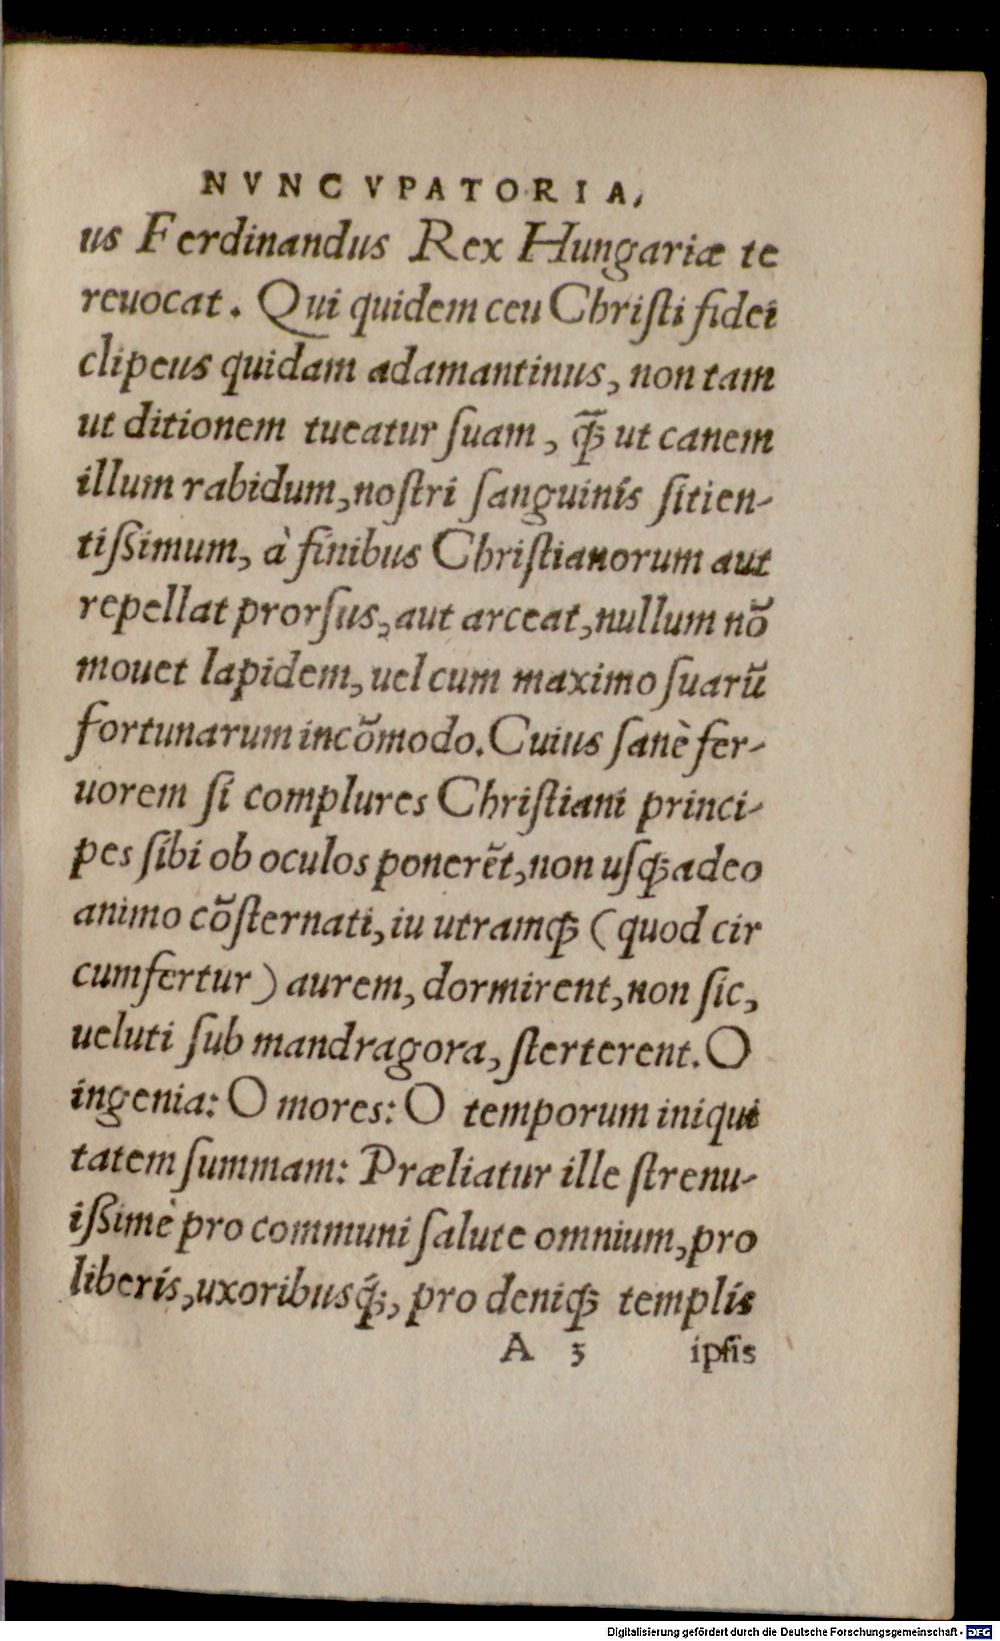 NVNCVPATORIA,
us Ferdinandus Rex Hungariæ te
reuocat. Qui quidem ceu Chriſti fidei
clipeus quidam adamantinus, non tam
ut ditionem tueatur ſuam, q̃ꝫ ut canem
illum rabidum, noſtri ſanguinis ſitien-
tiſſimum, à finibus Chriſtianorum aut
repellat prorſus, aut arceat, nullum nõ
mouet lapidem, uel cum maximo ſuarũ
fortunarum incõmodo. Cuius ſanè fer-
uorem ſi complures Chriſtiani princi-
pes ſibi ob oculos ponerẽt, non uſqꝫ adeo
animo cõſternati, iu utramqꝫ (quod cir
cumfertur) aurem, dormirent, non ſic,
ueluti ſub mandragora, ſterterent. O
ingenia: O mores: O temporum iniqui
tatem ſummam: Præliatur ille ſtrenu-
iſſimè pro communi ſalute omnium, pro
liberis, uxoribusq́ꝫ, pro deniqꝫ templis
A 3 ipſis
Digitalisierung gefördert durch die Deutsche Forschungsgemeinschaft - DFG